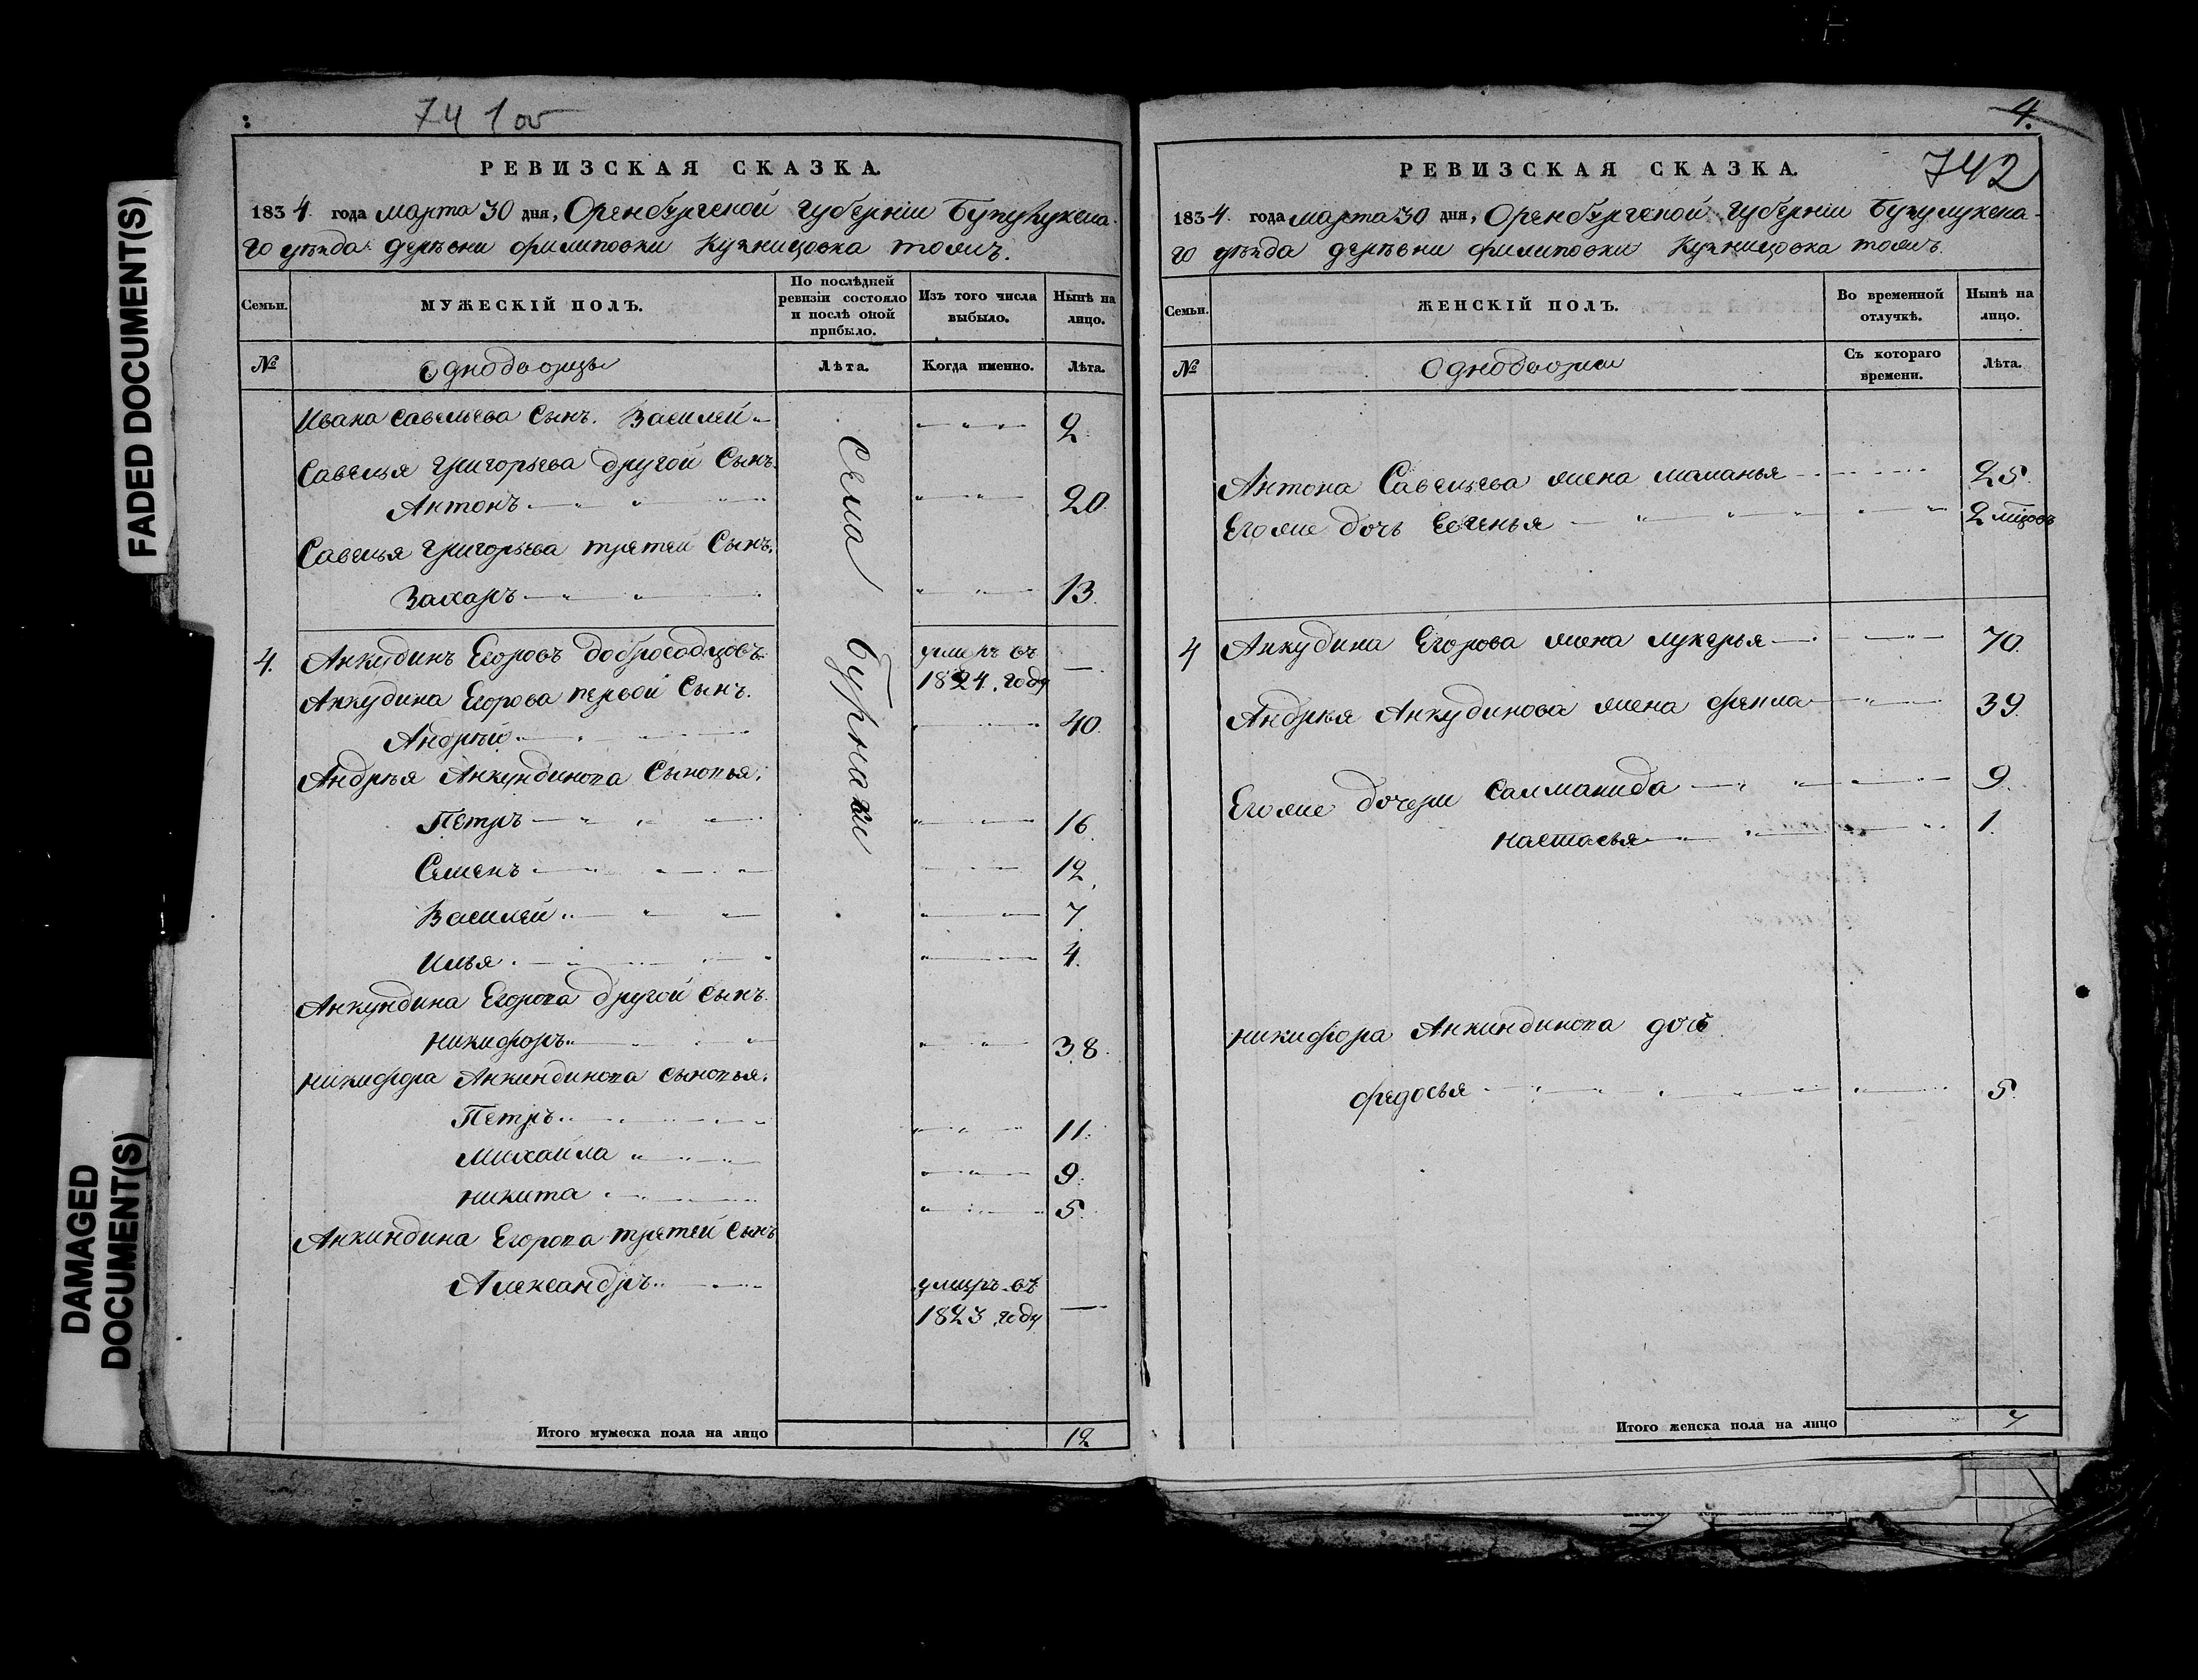 FADED DOCUMENT(S)
DAMAGED
DOCUMENT(S)
741 об
РЕВИЗСКАЯ СКАЗКА.
1834. года марта 30 дня, Оренбургской губерніи Бузулукска-
го уѣзда деревни филиповки Кузнецовка тожъ.
Семьи.
МУЖЕСКІЙ ПОЛЪ.
По послѣдней
ревизіи состояло
и послѣ оной
прибыло.
Изъ того числа
выбыло.
Нынѣ на
лицо.
№
Однодворцы
Лѣта.
Когда именно.
Лѣта.
села бурнаки
Ивана Савельева Сынъ. Василей 2
Савелья Григорьева другой Сынъ.
Антонъ 20
Савелья Григорьева третей Сынъ.
Захаръ 13.
4. Анкудинъ Егоровъ умеръ въ —
1824. году
Анкудина Егорова первой Сынъ.
Андрей 40.
Андрея Анкундинова Сыновья.
Петръ 16
Семенъ 12.
Василей 7.
Илья 4.
Анкундина Егорова другой Сынъ.
никифоръ 38.
никифора Анкиндинова сыновья.
Петръ 11.
Михаила 9.
никита 5.
Анкиндина Егорова третей Сынъ
Александръ умеръ въ
1823 году —
Итого мужеска пола на лицо 12
4.
742
РЕВИЗСКАЯ СКАЗКА.
1834. года марта 30 дня, Оренбургской губерніи Бузулукска-
го уѣзда деревни филиповки Кузнецовка тожъ.
Семьи.
ЖЕНСКІЙ ПОЛЪ.
Во временной
отлучкѣ.
Нынѣ на
лицо.
№
Однодворки
Съ котораго
времени.
Лѣта.
Антона Савельева жена маланья 25.
Его же дочь Евгенья 2 мѣсцовъ
4 Анкудина Егорова жена лукерья 70.
Андрея Анкудинова жена фекла 39.
Его же дочери Саламанида 9.
настасья 1.
никифора Анкиндинова дочь
федосья 5.
Итого женска пола на лицо 7